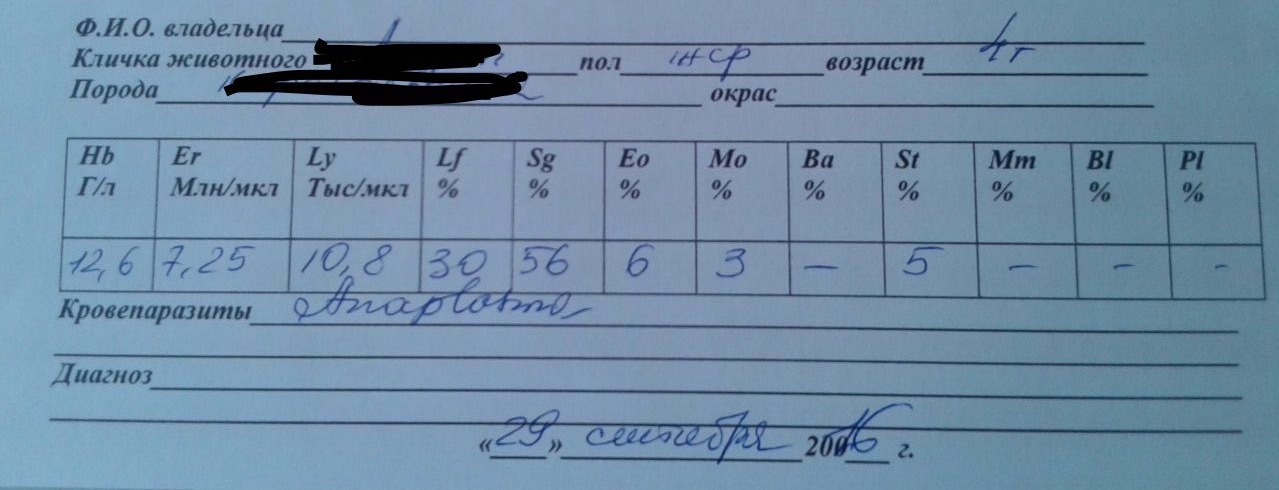 Ф.И.О. владельца
Кличка животного пол возраст 4г
Порода окрас
Hb Er Ly Lf Sg Eo Mo Ba St Mm Bl Pl
Г/л Млн/мкл Тыс/мкл % % % % % % % % %
12,6 7,25 10,8 30 56 6 3 — 5 — - -
Кровепаразиты Anaplasma
Диагноз
«29» сентября 20016 г.